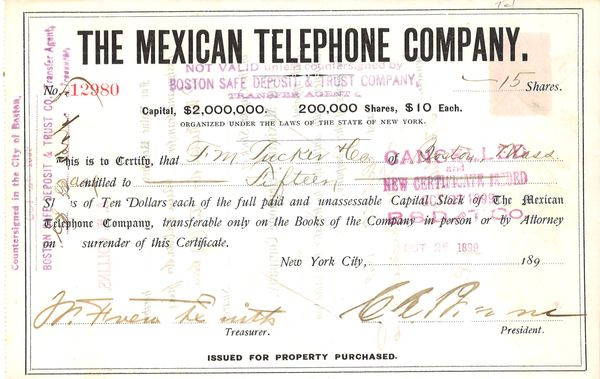 THE MEXICAN TELEPHONE COMPANY.
NOT VALID unless countersigned by
BOSTON SAFE DEPOSIT & TRUST COMPANY,
TRANSFER AGENT
No. 12980
15 Shares.
Capital, $2,000,000. 200,000 Shares, $10 Each.
ORGANIZED UNDER THE LAWS OF THE STATE OF NEW YORK.
This is to Certify, that F. M. Tucker & Co of Boston, Mass
entitled to Fifteen
of Ten Dollars each of the full paid and unassessable Capital Stock of The Mexican
Telephone Company, transferable only on the Books of the Company in person or by Attorney
on surrender of this Certificate.
CANCELLED
and
NEW CERTIFICATE ISSUED
B.S.D. & T. Co.
New York City, 189
Treasurer.
President.
ISSUED FOR PROPERTY PURCHASED.
Countersigned in the City of Boston,
BOSTON SAFE DEPOSIT & TRUST CO. Transfer Agent,